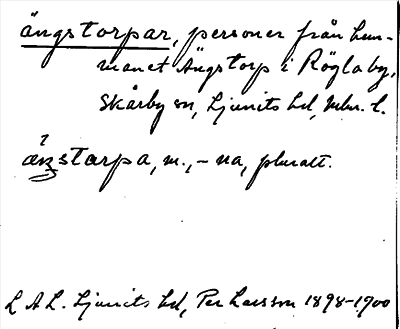 ängstorpar, personer från hem-
manet Ängstorp i Rögla by,
Skårby sn, Ljunits hd, Mlm. l.
äŋstarpa, m., – na, pluralt.
L A L. Ljunits hd, Per Larsson 1898–1900